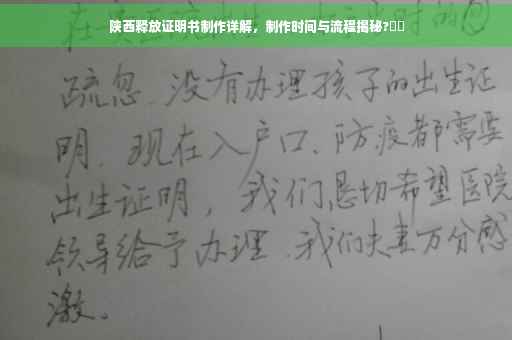 陕西释放证明书制作详解，制作时间与流程揭秘?
疏忽.没有办理孩子的出生证
明.现在入户口、防疫都需要
出生证明，我们恳切希望医院
领导给予办理.我们夫妻万分感
激。